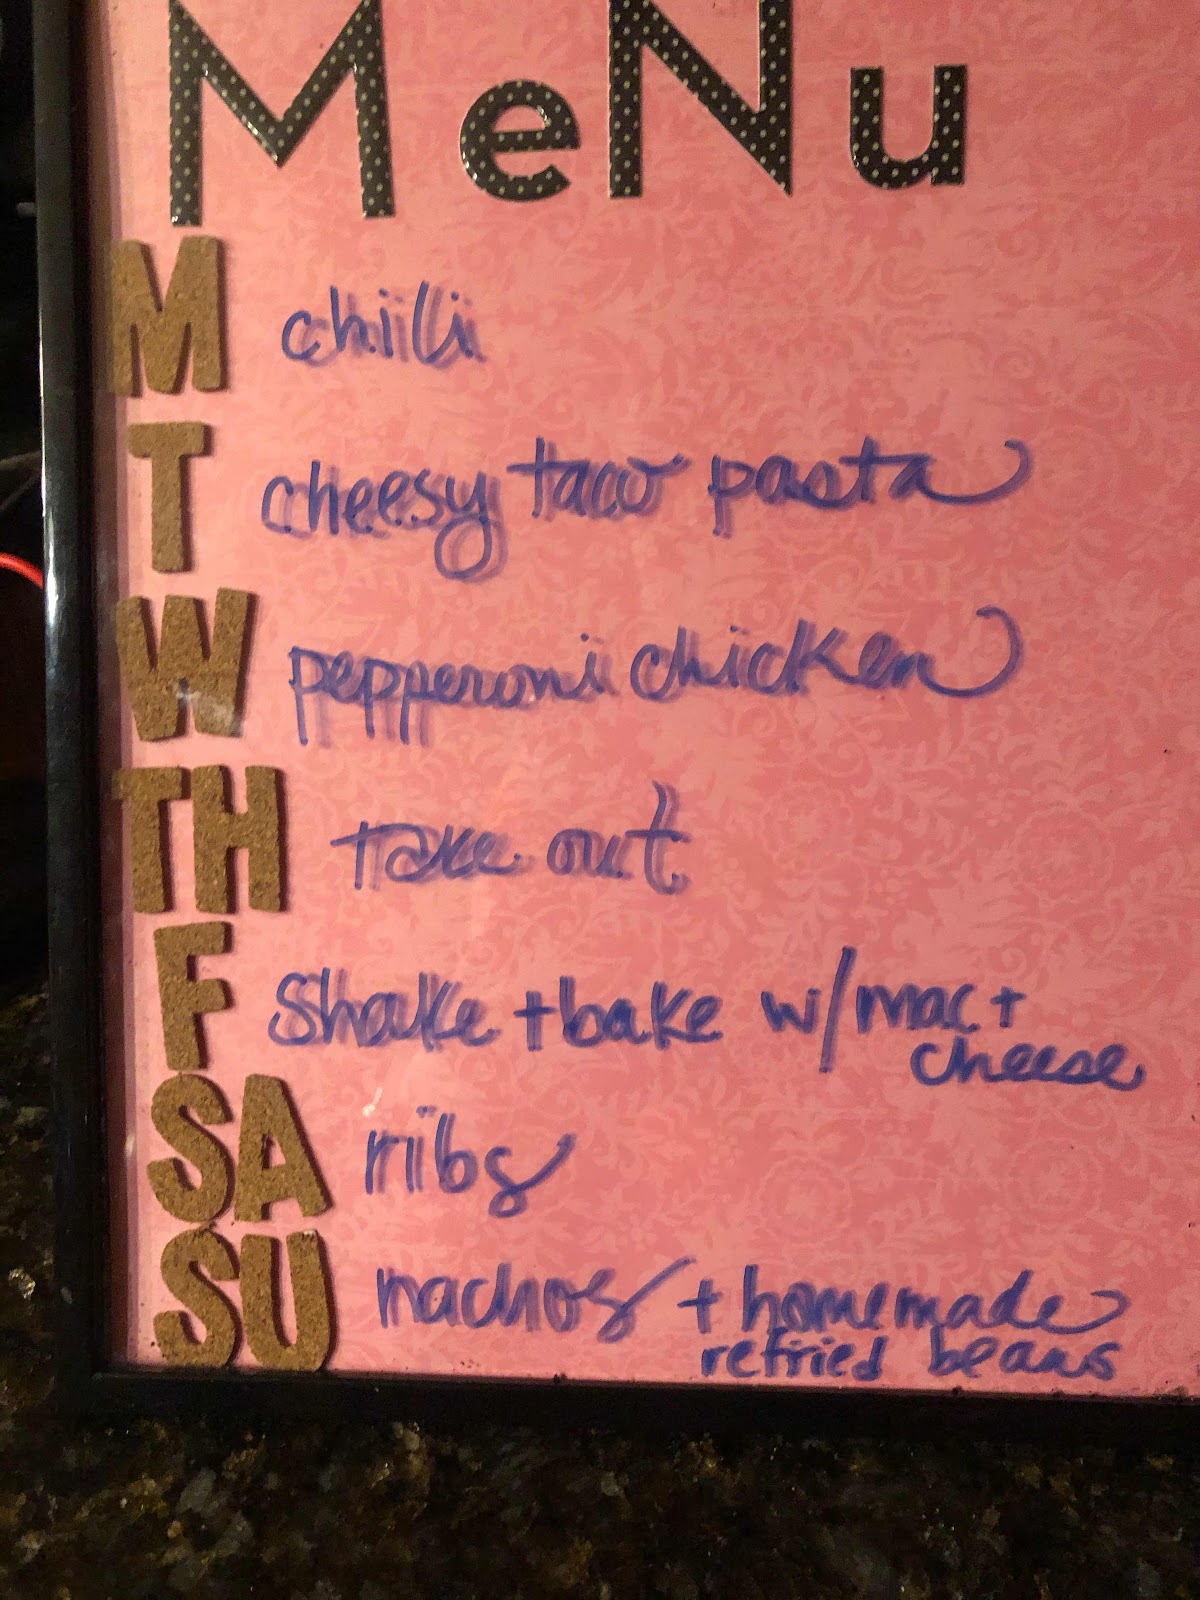 MeNu
M chili
T cheesy taco pasta
W pepperoni chicken
TH Take out
F Shake + bake w/ mac +
cheese
SA ribs
SU nachos + homemade
refried beans